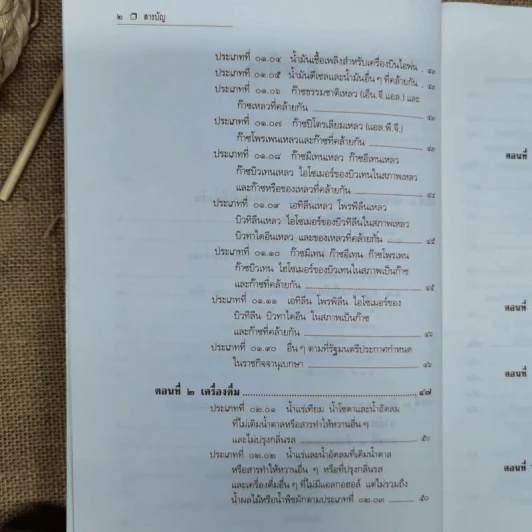 ๒ ❒ สารบัญ
ประเภทที่ ๐๑.๐๔ น้ำมันเชื้อเพลิงสำหรับเครื่องบินไอพ่น . ๔๑
ประเภทที่ ๐๑.๐๕ น้ำมันดีเซลและน้ำมันอื่น ๆ ที่คล้ายกัน . ๔๑
ประเภทที่ ๐๑.๐๖ ก๊าซธรรมชาติเหลว (เอ็น.จี.แอล.) และ
ก๊าซเหลวที่คล้ายกัน
ประเภทที่ ๐๑.๐๗ ก๊าซปิโตรเลียมเหลว (แอล.พี.จี.)
ก๊าซโพรเพนเหลวและก๊าซที่คล้ายกัน
ประเภทที่ ๐๑.๐๘ ก๊าซมีเทนเหลว ก๊าซอีเทนเหลว
ก๊าซบิวเทนเหลว ไอโซเมอร์ของบิวเทนในสภาพเหลว
และก๊าซหรือของเหลวที่คล้ายกัน ๔๔
ประเภทที่ ๐๑.๐๙ เอทิลีนเหลว โพรพิลีนเหลว
บิวทิลีนเหลว ไอโซเมอร์ของบิวทิลีนในสภาพเหลว
บิวทาไดอีนเหลว และของเหลวที่คล้ายกัน ๔๕
ประเภทที่ ๐๑.๑๐ ก๊าซมีเทน ก๊าซอีเทน ก๊าซโพรเพน
ก๊าซบิวเทน ไอโซเมอร์ของบิวเทนในสภาพเป็นก๊าซ
และก๊าซที่คล้ายกัน ๔๕
ประเภทที่ ๐๑.๑๑ เอทิลีน โพรพิลีน ไอโซเมอร์ของ
บิวทิลีน บิวทาไดอีน ในสภาพเป็นก๊าซ
และก๊าซที่คล้ายกัน ๔๖
ประเภทที่ ๐๑.๙๐ อื่น ๆ ตามที่รัฐมนตรีประกาศกำหนด
ในราชกิจจานุเบกษา ๔๖
ตอนที่ ๒ เครื่องดื่ม ๔๗
ประเภทที่ ๐๒.๐๑ น้ำแร่เทียม น้ำโซดาและน้ำอัดลม
ที่ไม่เติมน้ำตาลหรือสารทำให้หวานอื่น ๆ
และไม่ปรุงกลิ่นรส ๕๐
ประเภทที่ ๐๒.๐๒ น้ำแร่และน้ำอัดลมที่เติมน้ำตาล
หรือสารทำให้หวานอื่น ๆ หรือที่ปรุงกลิ่นรส
และเครื่องดื่มอื่น ๆ ที่ไม่มีแอลกอฮอล์ แต่ไม่รวมถึง
น้ำผลไม้หรือน้ำพืชผักตามประเภทที่ ๐๒.๐๓ ๕๐
ตอนที่
ตอนที่
ตอนที่
ตอนที่